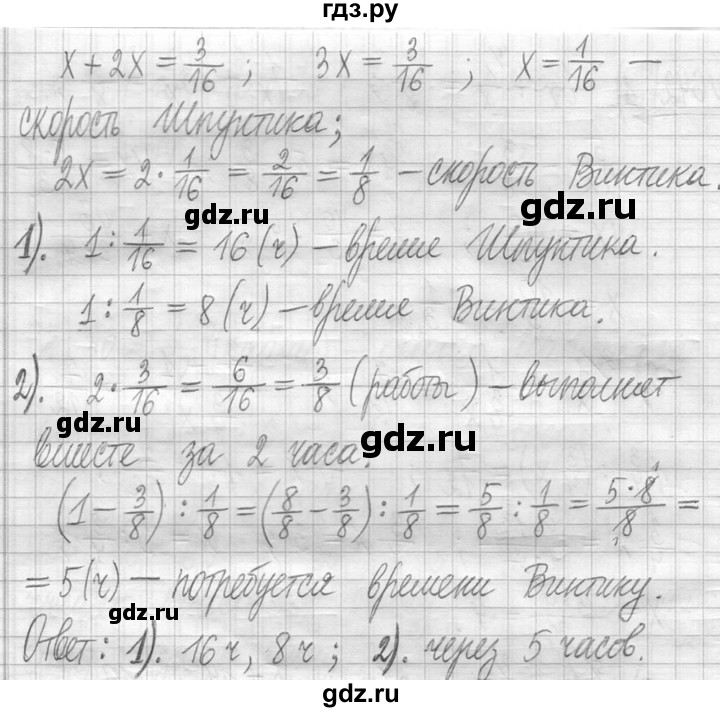 гдз.ру
x + 2x = 3/16 ; 3x = 3/16 ; x = 1/16 —
скорость Шпунтика;
2x = 2 · 1/16 = 2/16 = 1/8 – скорость Винтика.
gdz.ru gdz.ru
1). 1 : 1/16 = 16 (ч) – время Шпунтика.
1 : 1/8 = 8 (ч) – время Винтика.
gdz.ru
2). 2 · 3/16 = 6/16 = 3/8 (работы) – выполняет
gdz.ru gdz.ru
вместе за 2 часа.
(1 – 3/8) : 1/8 = (8/8 – 3/8) : 1/8 = 5/8 : 1/8 = 5·8/1·8 =
= 5 (ч) – потребуется времени Винтику.
gdz.ru
Ответ: 1). 16 ч, 8 ч ; 2). через 5 часов.
gdz.ru
gdz.ru